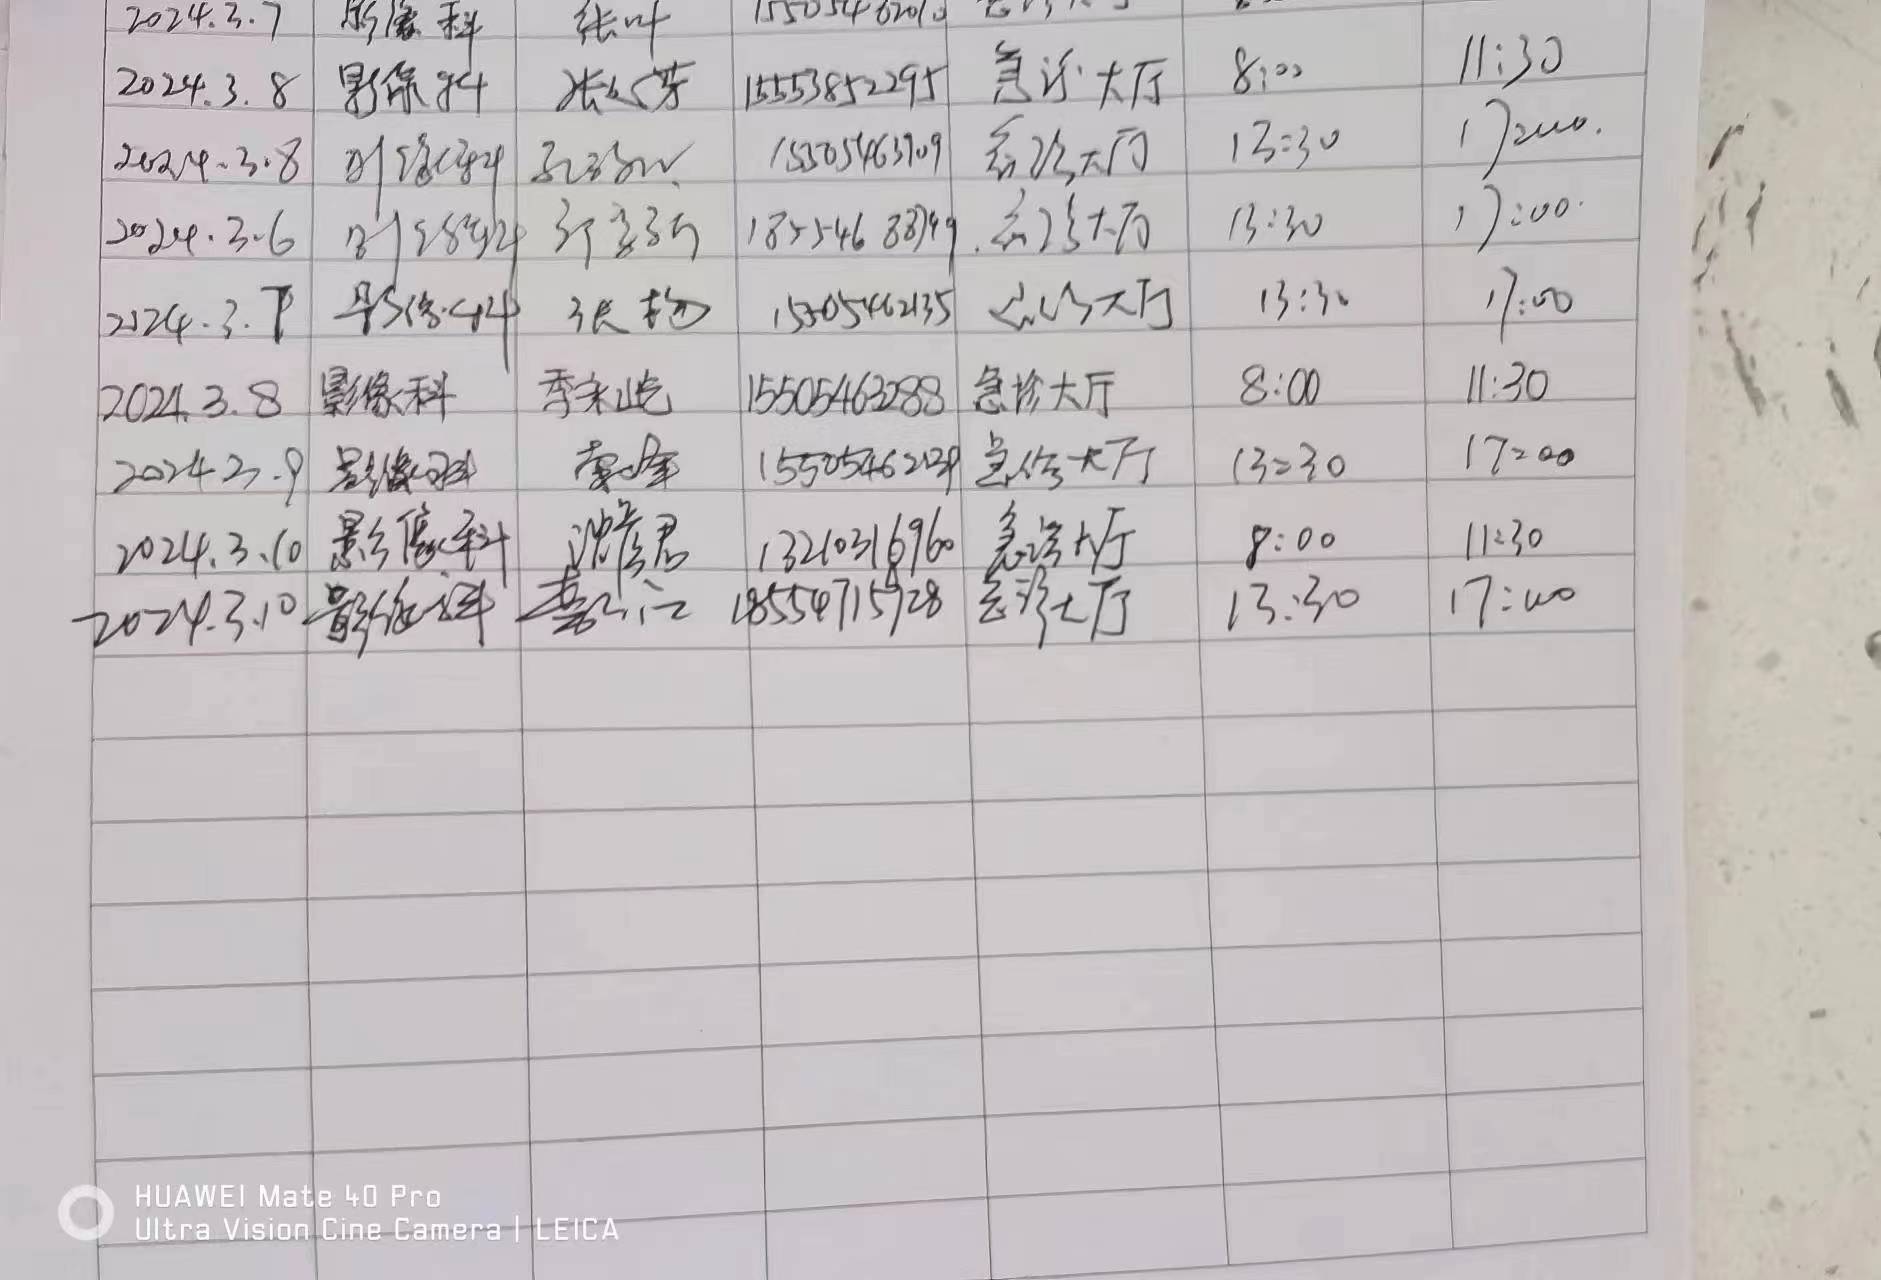 2024.3.7 影像科 张叶
2024.3.8 影像科 张 芳 15553852295 急诊大厅 8:00 11:30
2024.3.8 影像科 急诊大厅 13:30 17:00.
2024.3.6 影像科 急诊大厅 13:30 17:00.
2024.3.7 影像科 张 15505462135 急诊大厅 13:30 17:00
2024.3.8 影像科 季宋屹 15505463288 急诊大厅 8:00 11:30
2024.3.9 影像科 急诊大厅 13:30 17:00
2024.3.10 影像科 沈彦君 13210316960 急诊大厅 8:00 11:30
2024.3.10 影像科 18554715928 急诊大厅 13:30 17:00
HUAWEI Mate 40 Pro
Ultra Vision Cine Camera | LEICA